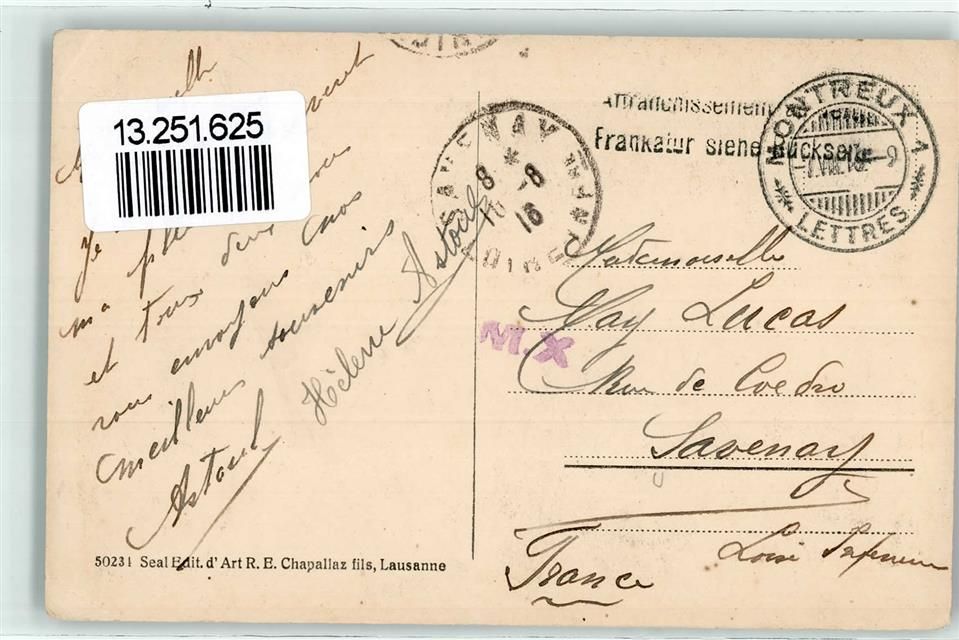 13.251.625
Affranchissement
Frankatur siehe Rückseite
MONTREUX 1
LETTRES
SAVENAY
8 * 8
16
M.X
Je
ma
et tous deux
vous envoyons nos
meilleurs souvenirs
Astoul
Hélène Astoul
Mademoiselle
May Lucas
Rue de
Savenay
Loire Inférieure
France
50231 Seal Edit. d'Art R. E. Chapallaz fils, Lausanne